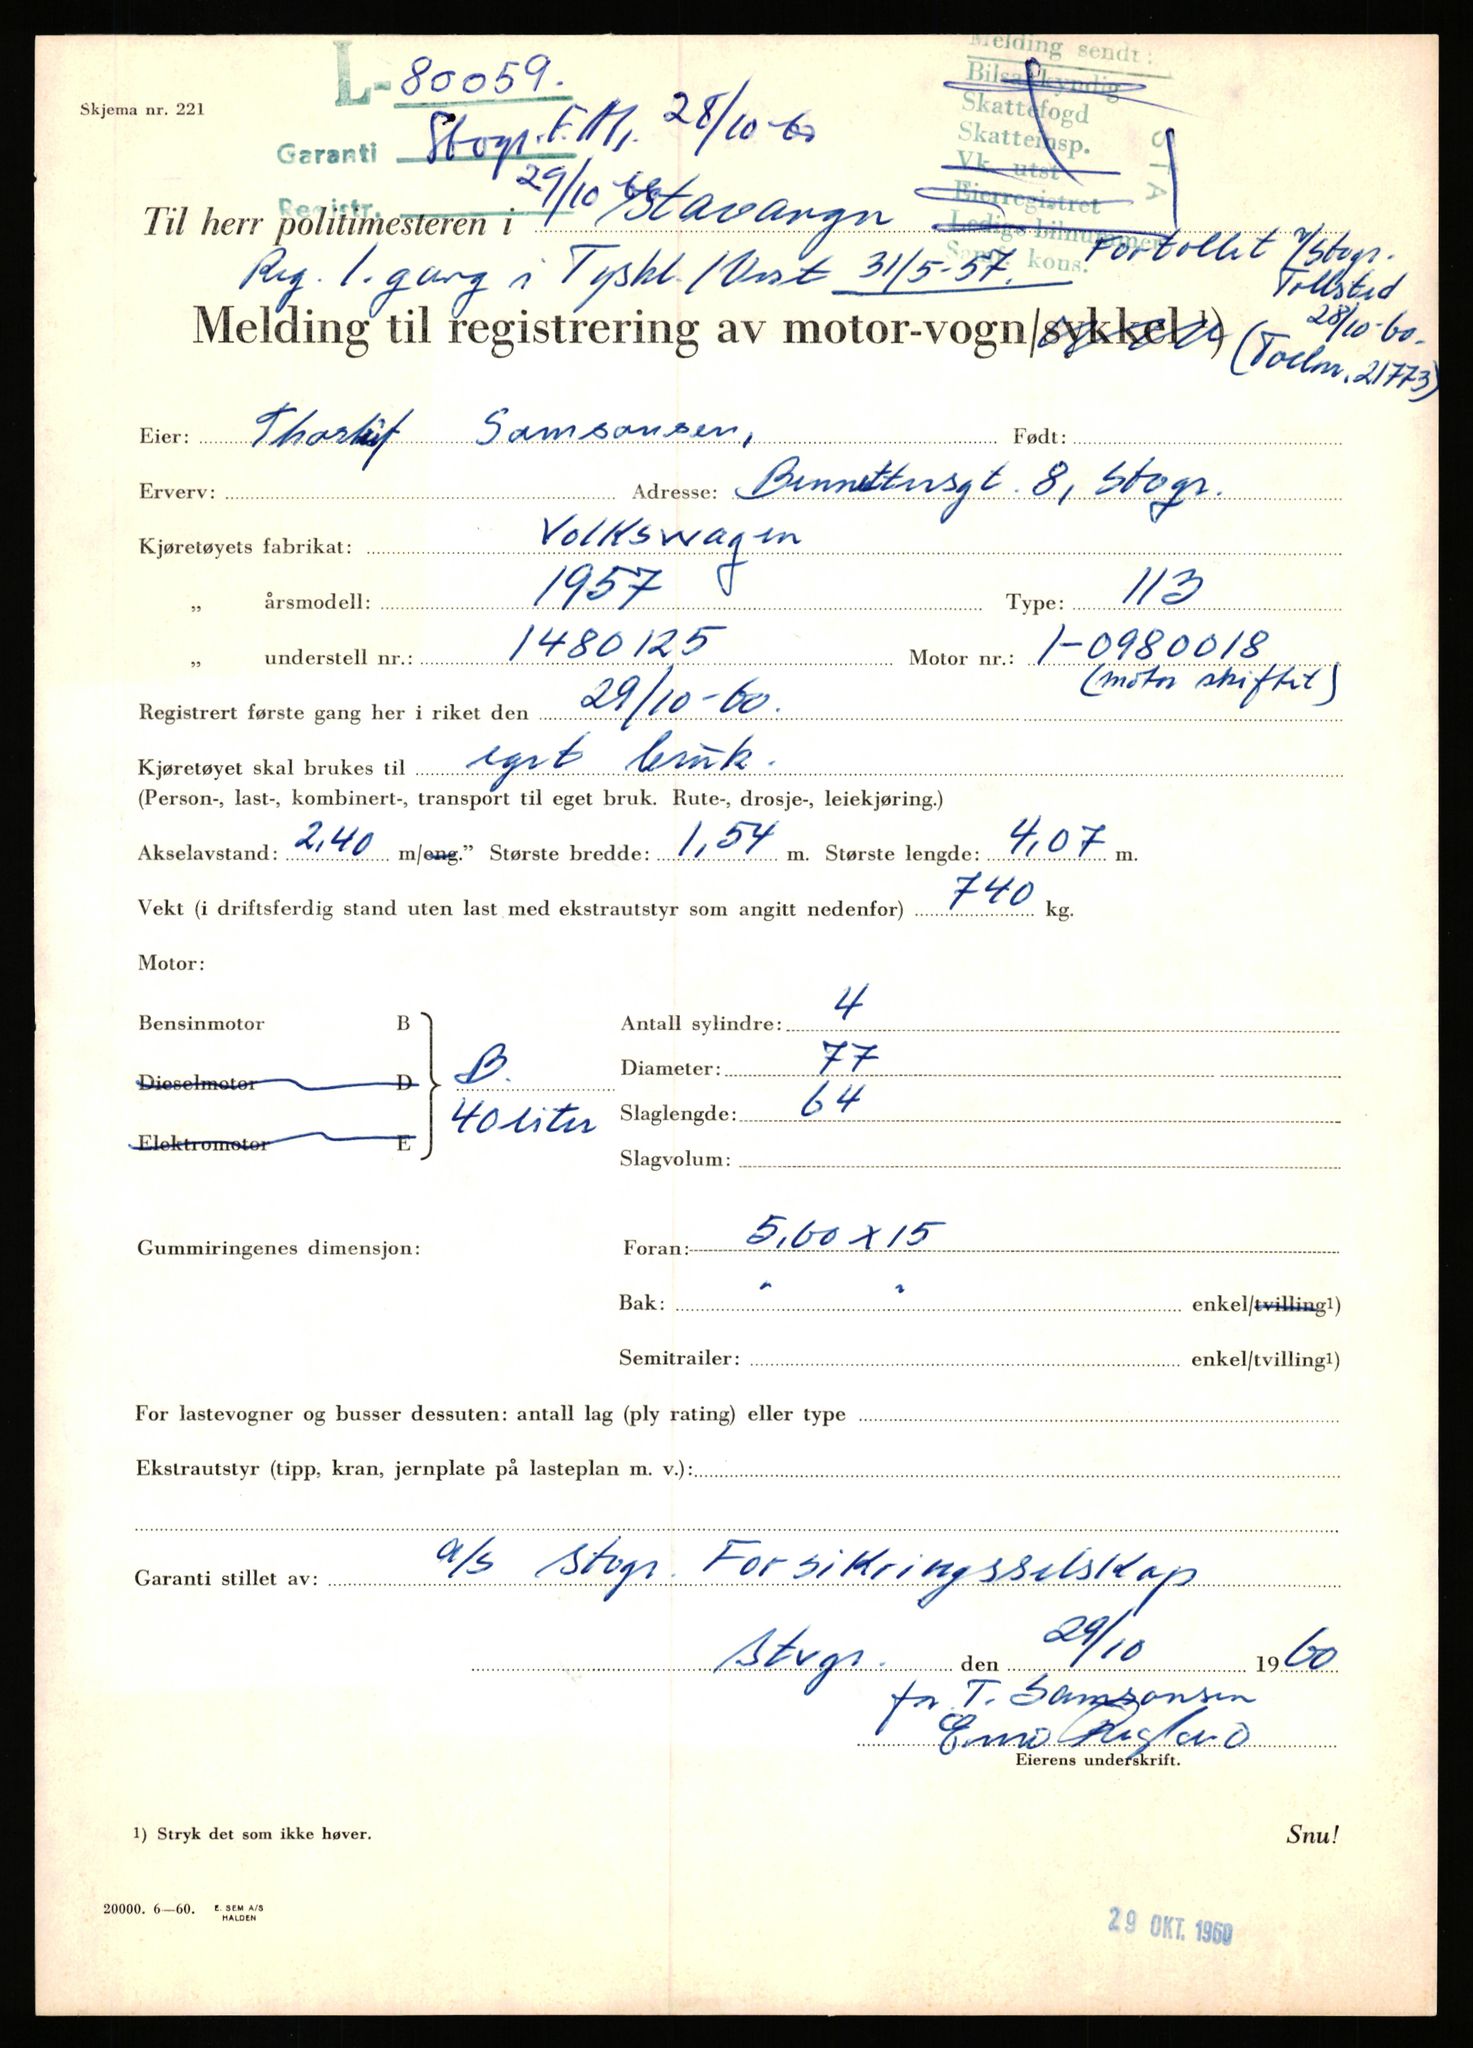 Skjema nr. 221
L-80059.
Melding sendt:
Bilsakkyndig
Skattefogd
Skatteinsp.
Vk. utst
Eierregistret
Ledige bilnummer
kons.
STA
Garanti Stvgr. F. 28/10-60
Registr. 29/10
Til herr politimesteren i Stavanger
Reg. 1. gang i Tyskl. / Vest 31/5-57.
Fortollet v/Stvgr.
Tollsted
28/10-60.
(Tollnr. 21773)
Melding til registrering av motor-vogn/sykkel ¹)
Eier: Thorleif Samsonsen, Født:
Erverv: Adresse: Bennettersgt. 8, Stvgr.
Kjøretøyets fabrikat: Volkswagen
„ årsmodell: 1957 Type: 113
„ understell nr.: 1480125 Motor nr.: 1-0980018
(motor skiftet)
Registrert første gang her i riket den 29/10-60.
Kjøretøyet skal brukes til eget bruk.
(Person-, last-, kombinert-, transport til eget bruk. Rute-, drosje-, leiekjøring.)
Akselavstand: 2,40 m/eng.” Største bredde: 1,54 m. Største lengde: 4,07 m.
Vekt (i driftsferdig stand uten last med ekstrautstyr som angitt nedenfor) 740 kg.
Motor:
Bensinmotor B
Dieselmotor D
Elektromotor E
B.
40 liter
Antall sylindre: 4
Diameter: 77
Slaglengde: 64
Slagvolum:
Gummiringenes dimensjon: Foran: 5,60 x 15
Bak: " " enkel/tvilling¹)
Semitrailer: enkel/tvilling¹)
For lastevogner og busser dessuten: antall lag (ply rating) eller type
Ekstrautstyr (tipp, kran, jernplate på lasteplan m. v.):
Garanti stillet av: a/s Stvgr. Forsikringsselskap
Stvgr. den 29/10 1960
for T. Samsonsen
Eierens underskrift.
¹) Stryk det som ikke høver.
Snu!
20000. 6—60. E. SEM A/S
HALDEN
29 OKT. 1960